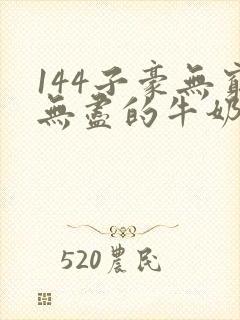 144子豪無窮
無盡的牛奶
520農民